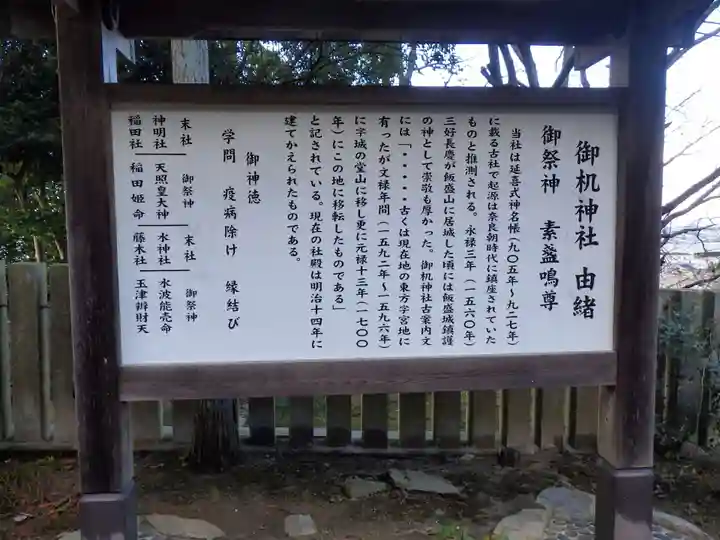 御机神社 由緒
御祭神 素盞鳴尊
当社は延喜式神名帳(九〇五年~九二七年)
に載る古社で起源は奈良朝時代に鎮座されていた
ものと推測される。永禄三年(一五六〇年)
三好長慶が飯盛山に居城した頃には飯盛城鎮護
の神として崇敬も厚かった。御机神社古案内文
には「・・・・・古くは現在地の東方字宮地に
有ったが文禄年間(一五九二年~一五九六年)
に字城の堂山に移し更に元禄十三年(一七〇〇
年)にこの地に移転したものである」
と記されている。現在の社殿は明治十四年に
建てかえられたものである。
御神徳
学問 疫病除け 縁結び
末社 御祭神 末社 御祭神
神明社―天照皇大神 水神社―水波能売命
稲田社―稲田姫命 藤本社―玉津辨財天